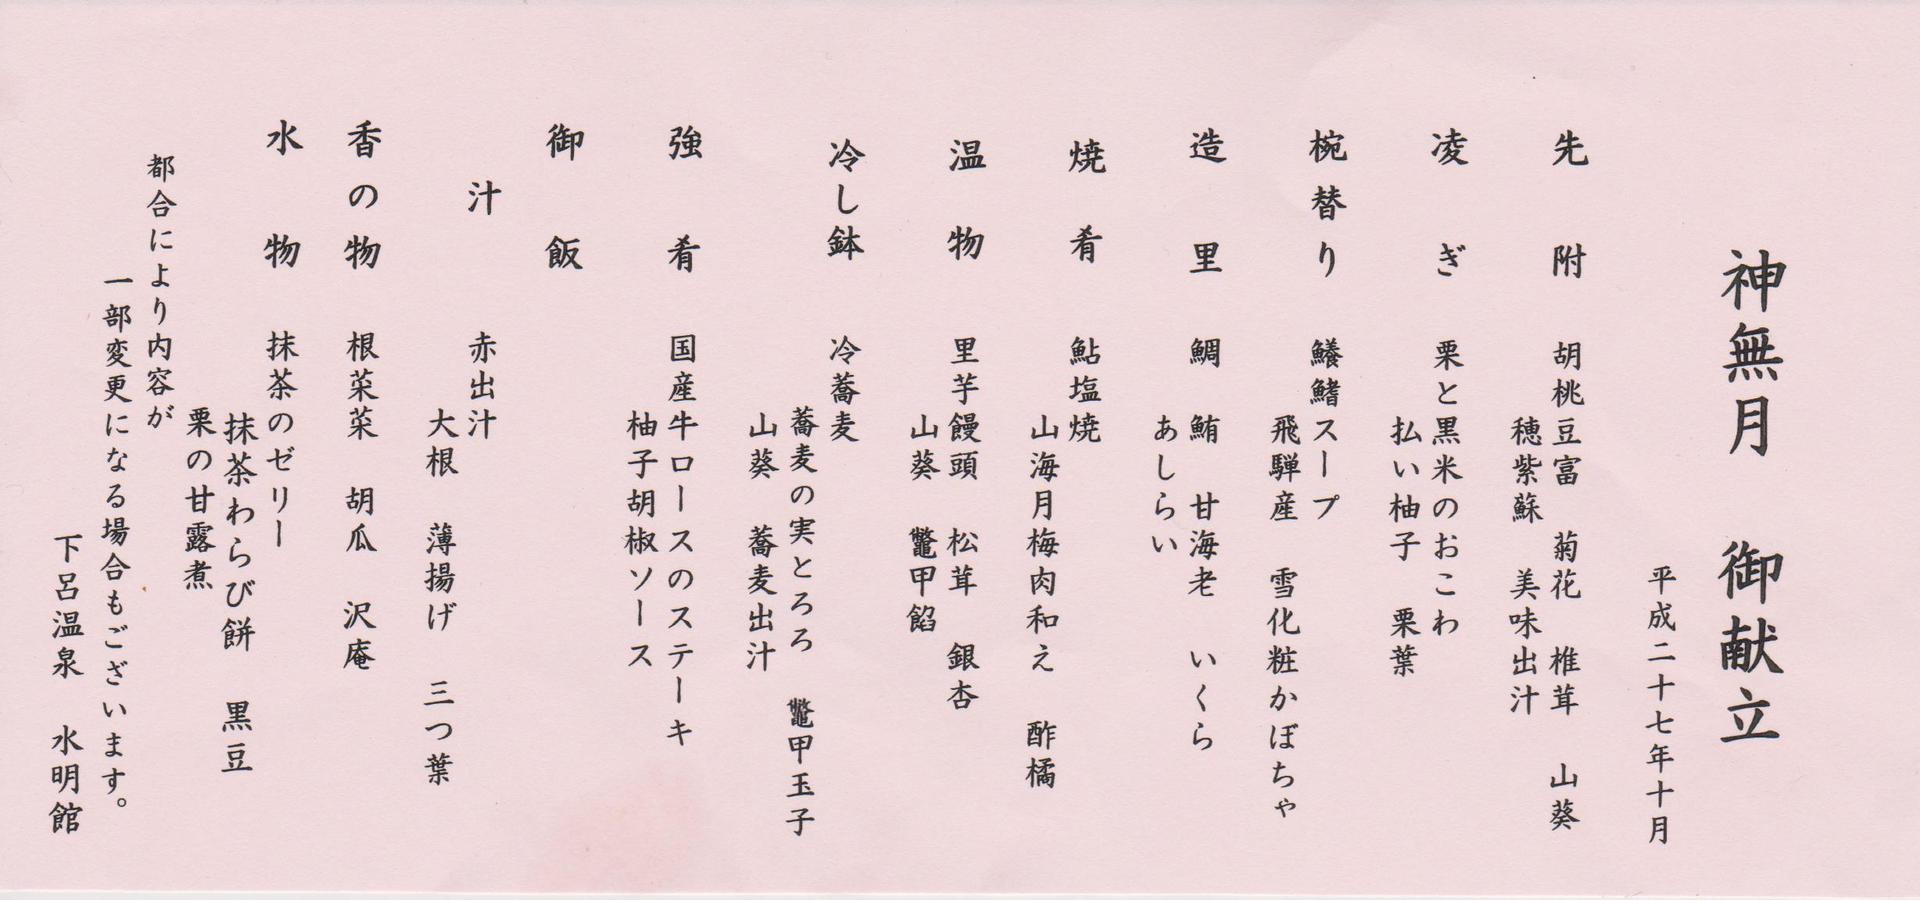 神無月　御献立
平成二十七年十月
先附　胡桃豆富　菊花　椎茸　山葵
穂紫蘇　美味出汁
凌ぎ　栗と黒米のおこわ
払い柚子　栗葉
椀替り　鱶鰭スープ
飛騨産　雪化粧かぼちゃ
造里　鯛　鮪　甘海老　いくら
あしらい
焼肴　鮎塩焼
山海月梅肉和え　酢橘
温物　里芋饅頭　松茸　銀杏
山葵　鼈甲餡
冷し鉢　冷蕎麦
蕎麦の実とろろ　鼈甲玉子
山葵　蕎麦出汁
強肴　国産牛ロースのステーキ
柚子胡椒ソース
御飯
汁　赤出汁
大根　薄揚げ　三つ葉
香の物　根菜菜　胡瓜　沢庵
水物　抹茶のゼリー
抹茶わらび餅　黒豆
栗の甘露煮
都合により内容が
一部変更になる場合もございます。
下呂温泉　水明館